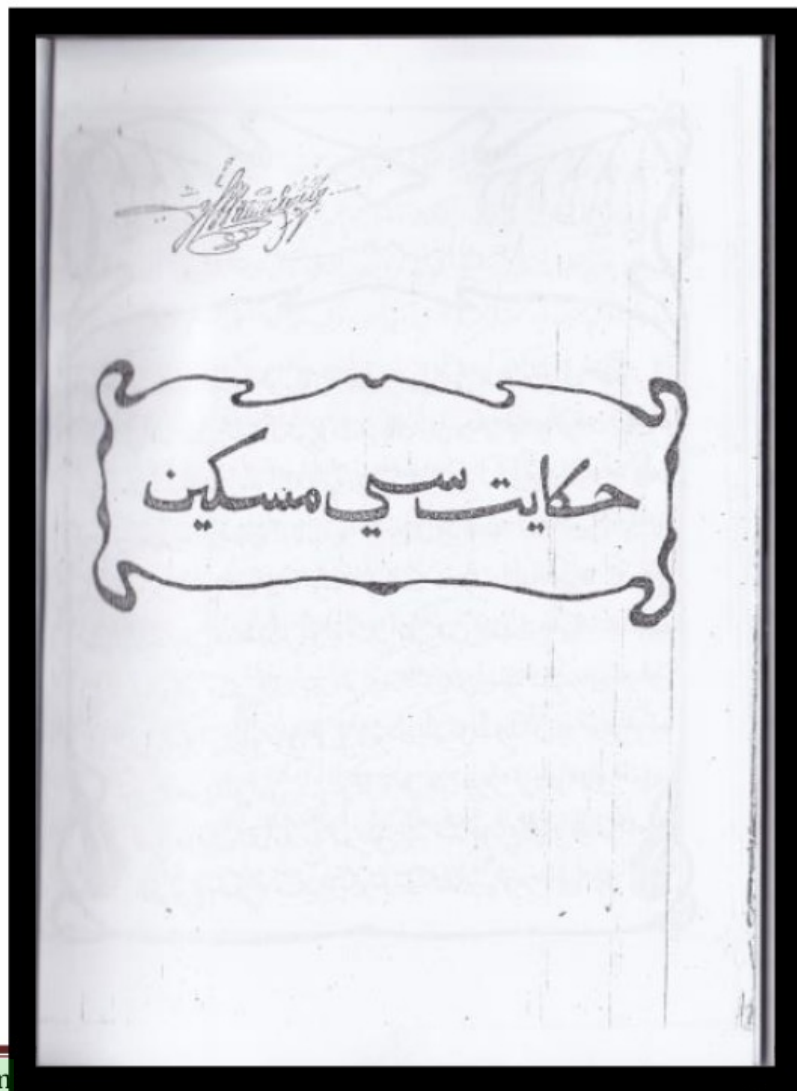 حكايت سي مسكين